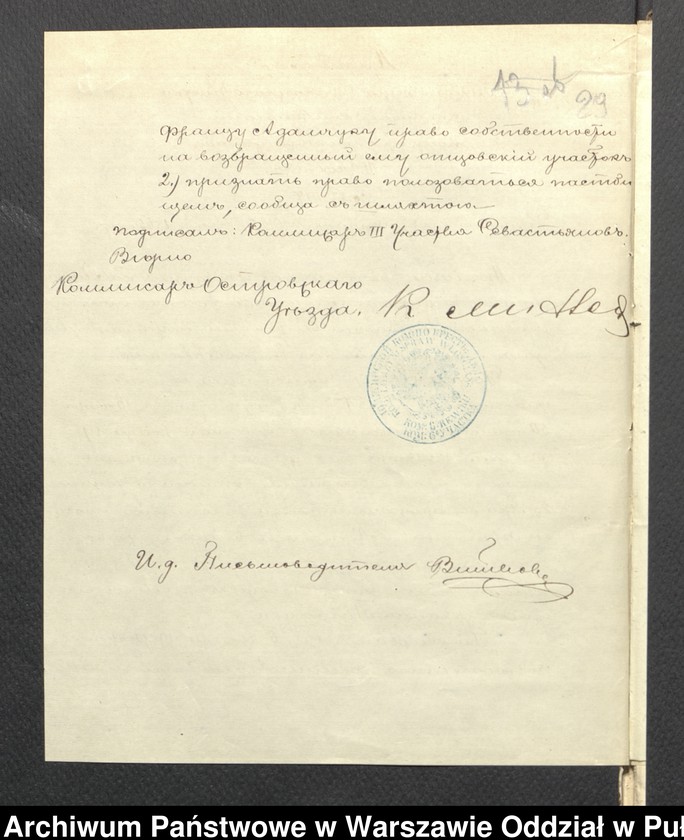 29
Францу Адамчуку право собственности
на возвращенный ему отцовскій участокъ
2.) признать право пользоваться пастби
щемъ, сообща съ шляхтою
подписалъ: Коммисаръ III Участка Севастьяновъ.
Вѣрно
Коммисаръ Островскаго
Уѣзда.
И. д. Письмоводителя
Archiwum Państwowe w Warszawie Oddział w Puł